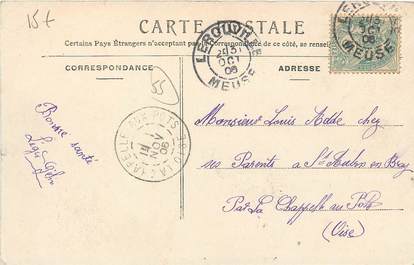 15f
CARTE POSTALE
Certains Pays Étrangers n'acceptant pas de correspondance de ce côté, se renseigner
CORRESPONDANCE
ADRESSE
LEROUVILLE
31
OCT
06
MEUSE
55
LACHAPELLE AUX POTS
1
NOV
06
Bonne santé
Monsieur Louis Adde chez
ses Parents à St Aubin en Bray
Par La Chapelle au Pots
(Oise)